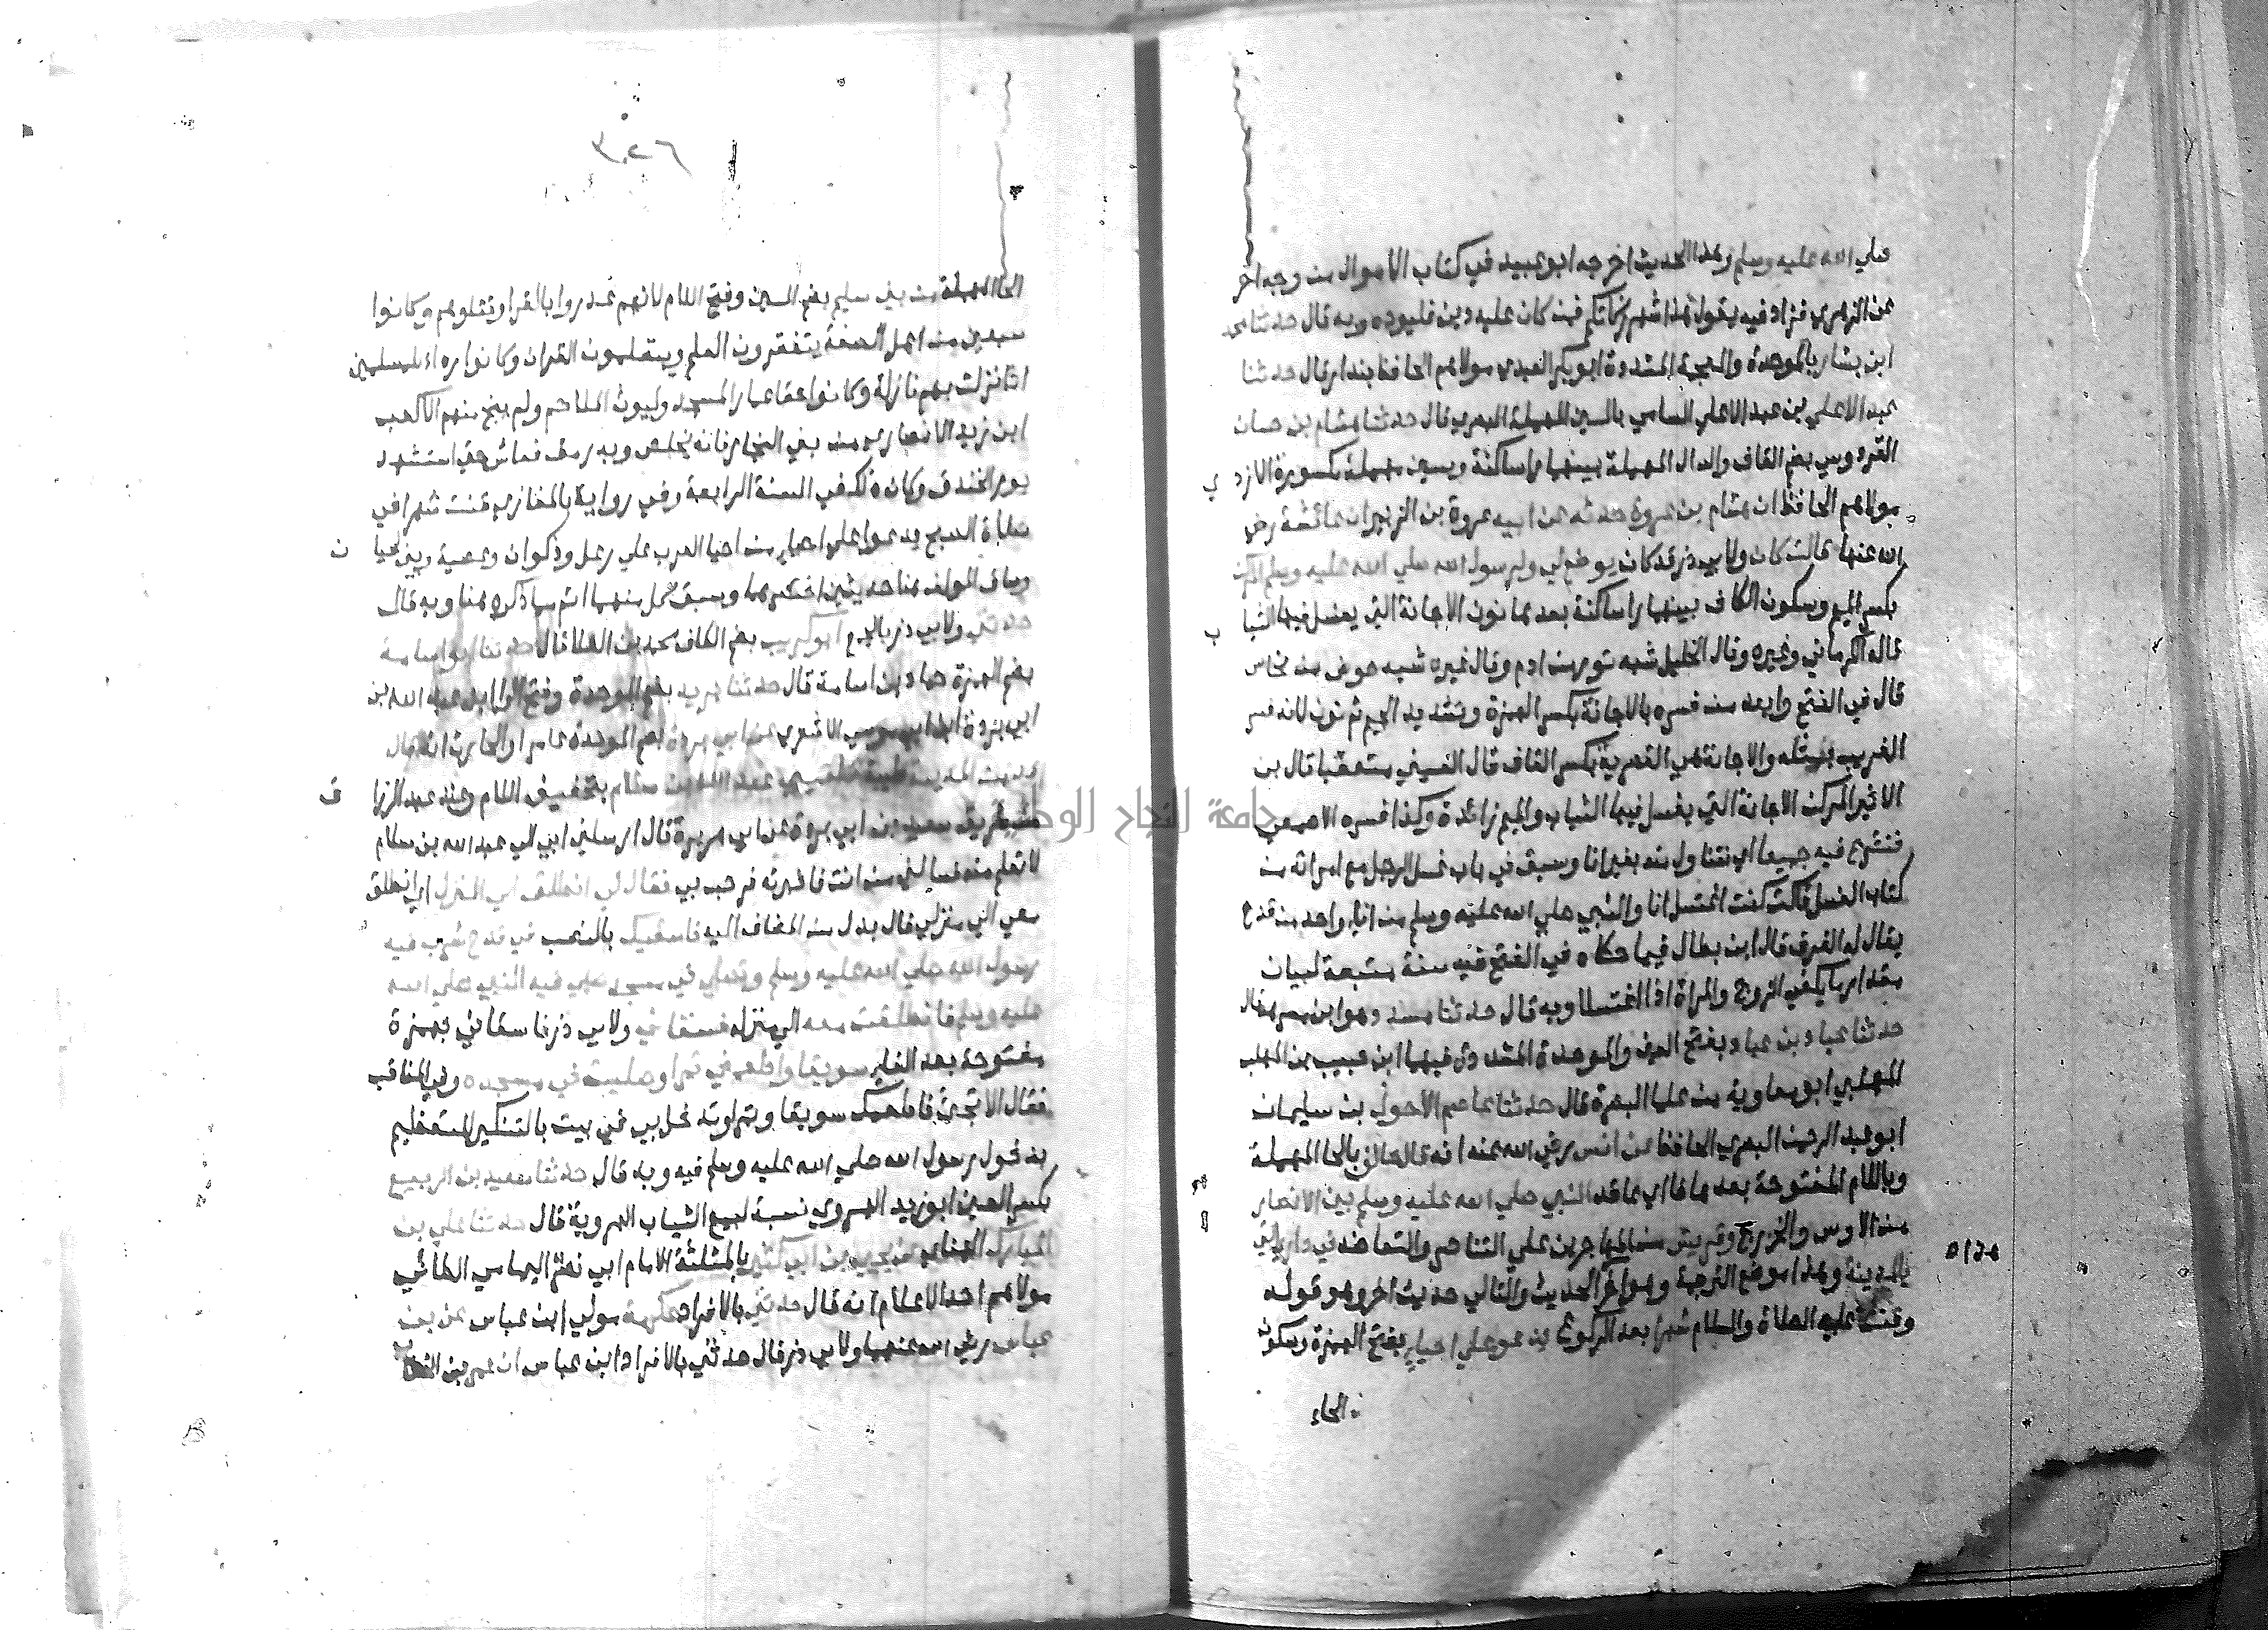 صلي الله عليه وسلم وهذا الحديث اخرجه ابو عبيد في كتاب الاموال من وجه اخر
عن الزهري فزاد فيه يقول هذا شهر زكاتكم فمن كان عليه دين فليوده وبه قال حدثنا محمد
ابن بشار بالموحدة والمعجمة المشددة ابو بكر العبدي مولاهم الحافظ بندار قال حدثنا
عبد الاعلي بن عبد الاعلي السامي بالسين المهملة البصري قال حدثنا هشام بن حسان
القردوسي بضم القاف والدال المهملة بينهما را ساكنة وبسين مهملة مكسورة الازدي
مولاهم الحافظ ان هشام بن عروة حدثه عن ابيه عروة بن الزبير ان عائشة رضي
الله عنها قالت كان ولابي ذر قد كان يوضع لي ولرسول الله صلي الله عليه وسلم المركن
بكسر الميم وسكون الكاف بينهما را ساكنة بعدها نون الاجانة التي يغسل فيها الثياب
قاله الكرماني وغيره وقال الخليل شبه تور من ادم وقال غيره شبه حوض من نحاس
قال في الفتح وابعد من فسره بالاجانة بكسر الهمزة وتشديد الجيم ثم نون لانه فسر
الغريب بمثله والاجانة هي القصرية بكسر القاف قال العيني متعقبا قال بن
الاثير المركن الاجانة التي يغسل فيها الثياب والميم زائدة وكذا فسره الاصمعي
فنشرع فيه جميعا اي نتناول منه بغير انا وسبق في باب غسل الرجل مع امراته من
كتاب الغسل قالت كنت اغتسل انا والنبي صلي الله عليه وسلم من انا واحد من قدح
يقال له الفرق قال ابن بطال فيما حكاه في الفتح فيه سنة متبعة لبيان
مقدار ما يكفي الزوج والمراة اذا اغتسلا وبه قال حدثنا مسدد وهو ابن مسرهد قال
حدثنا عباد بن عباد بفتح العين والموحدة المشددة فيهما ابن حبيب بن المهلب
المهلبي ابو معاوية من علما البصرة قال حدثنا عاصم الاحول بن سليمان
ابو عبد الرحمن البصري الحافظ عن انس رضي الله عنه انه قال حالف بالحا المهملة
وباللام المفتوحة بعدها فا اي عاقد النبي صلي الله عليه وسلم بين الانصار
من الاوس والخزرج وقريش من المهاجرين علي التناصر والتعاضد في داري التي
بالمدينة وهذا موضع الترجمة وهو اخر الحديث والتالي حديث اخر وهو قوله
وقنت عليه الصلاة والسلام شهرا بعد الركوع يدعو علي احياء بفتح الهمزة وسكون
الحاء
٣٠٢٦
الحا المهملة من بني سليم بضم السين وفتح اللام لانهم غدروا بالقرا وقتلوهم وكانوا
سبعين من اهل الصفة يتفقرون العلم ويتعلمون القران وكانوا ردءا للمسلمين
اذا نزلت بهم نازلة وكانوا حقا عمار المسجد وليوث الملاحم ولم ينج منهم الا كعب
ابن زيد الانصاري من بني النجار فانه تخلص وبه رمق فعاش حتي استشهد
يوم الخندق وكان ذلك في السنة الرابعة وفي رواية بالمغازي قنت شهرا في
صلاة الصبح يدعوا علي احياء من احيا العرب علي رعل وذكوان وعصية وبني لحيان
وساق المولف هنا حديثين اختصرهما وسبق كل منهما اتم مما ذكره هنا وبه قال
حدثني ولابي ذر بالجمع ابو كريب بضم الكاف محمد بن العلا قال حدثنا ابو اسامة
بضم الهمزة حماد بن اسامة قال حدثنا بريد بضم الموحدة وفتح الرا ابن عبد الله بن
ابي بردة ابن ابي موسي الاشعري عن ابي بردة بضم الموحدة عامر او الحارث انه قال
قدمت المدينة طيبة فلقيني عبد الله بن سلام بتخفيف اللام وعند عبد الرزاق
من طريق سعيد بن ابي بردة عن ابي بردة قال ارسلني ابي الي عبد الله بن سلام
لا تعلم منه فسالني من انت فاخبرته فرحب بي فقال لي انطلق الي المنزل اي انطلق
معي الي منزلي فال بدل من المضاف اليه فاسقيك بالنصب في قدح شرب فيه
رسول الله صلي الله عليه وسلم وتصلي في مسجد صلي فيه النبي صلي الله
عليه وسلم فانطلقت معه الي منزله فسقاني ولابي ذر فاسقاني بهمزة
مفتوحة بعد الفاء سويقا واطعمني تمرا وصليت في مسجده وفي المناقب
فقال الا تجئ فاطعمك سويقا وتمرا وتدخل بي في بيت بالتنكير للتعظيم
بدخول رسول الله صلي الله عليه وسلم فيه وبه قال حدثنا سعيد بن الربيع
بكسر العين ابو زيد الهروي نسبة لبيع الثياب الهروية قال حدثنا علي بن
المبارك الهنائي عن يحيي بن ابي كثير بالمثلثة الامام ابي نصر اليمامي الطائي
مولاهم احد الاعلام انه قال حدثني بالافراد عكرمة مولي ابن عباس عن بن
عباس رضي الله عنهما ولابي ذر قال حدثني بالافراد ابن عباس ان عمر بن الخطاب
جامعة النجاح الوطنية